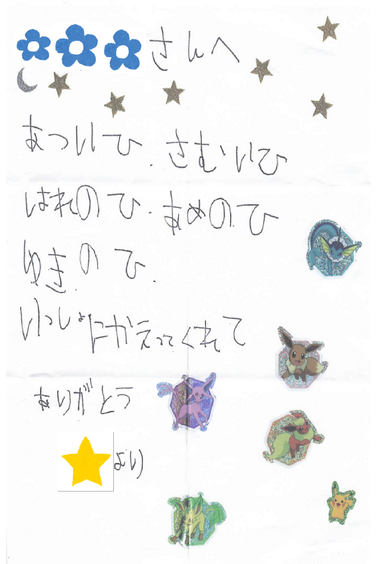 さんへ
あついひ、さむいひ
はれのひ、あめのひ
ゆきのひ、
いっしょにかえってくれて
ありがとう
より